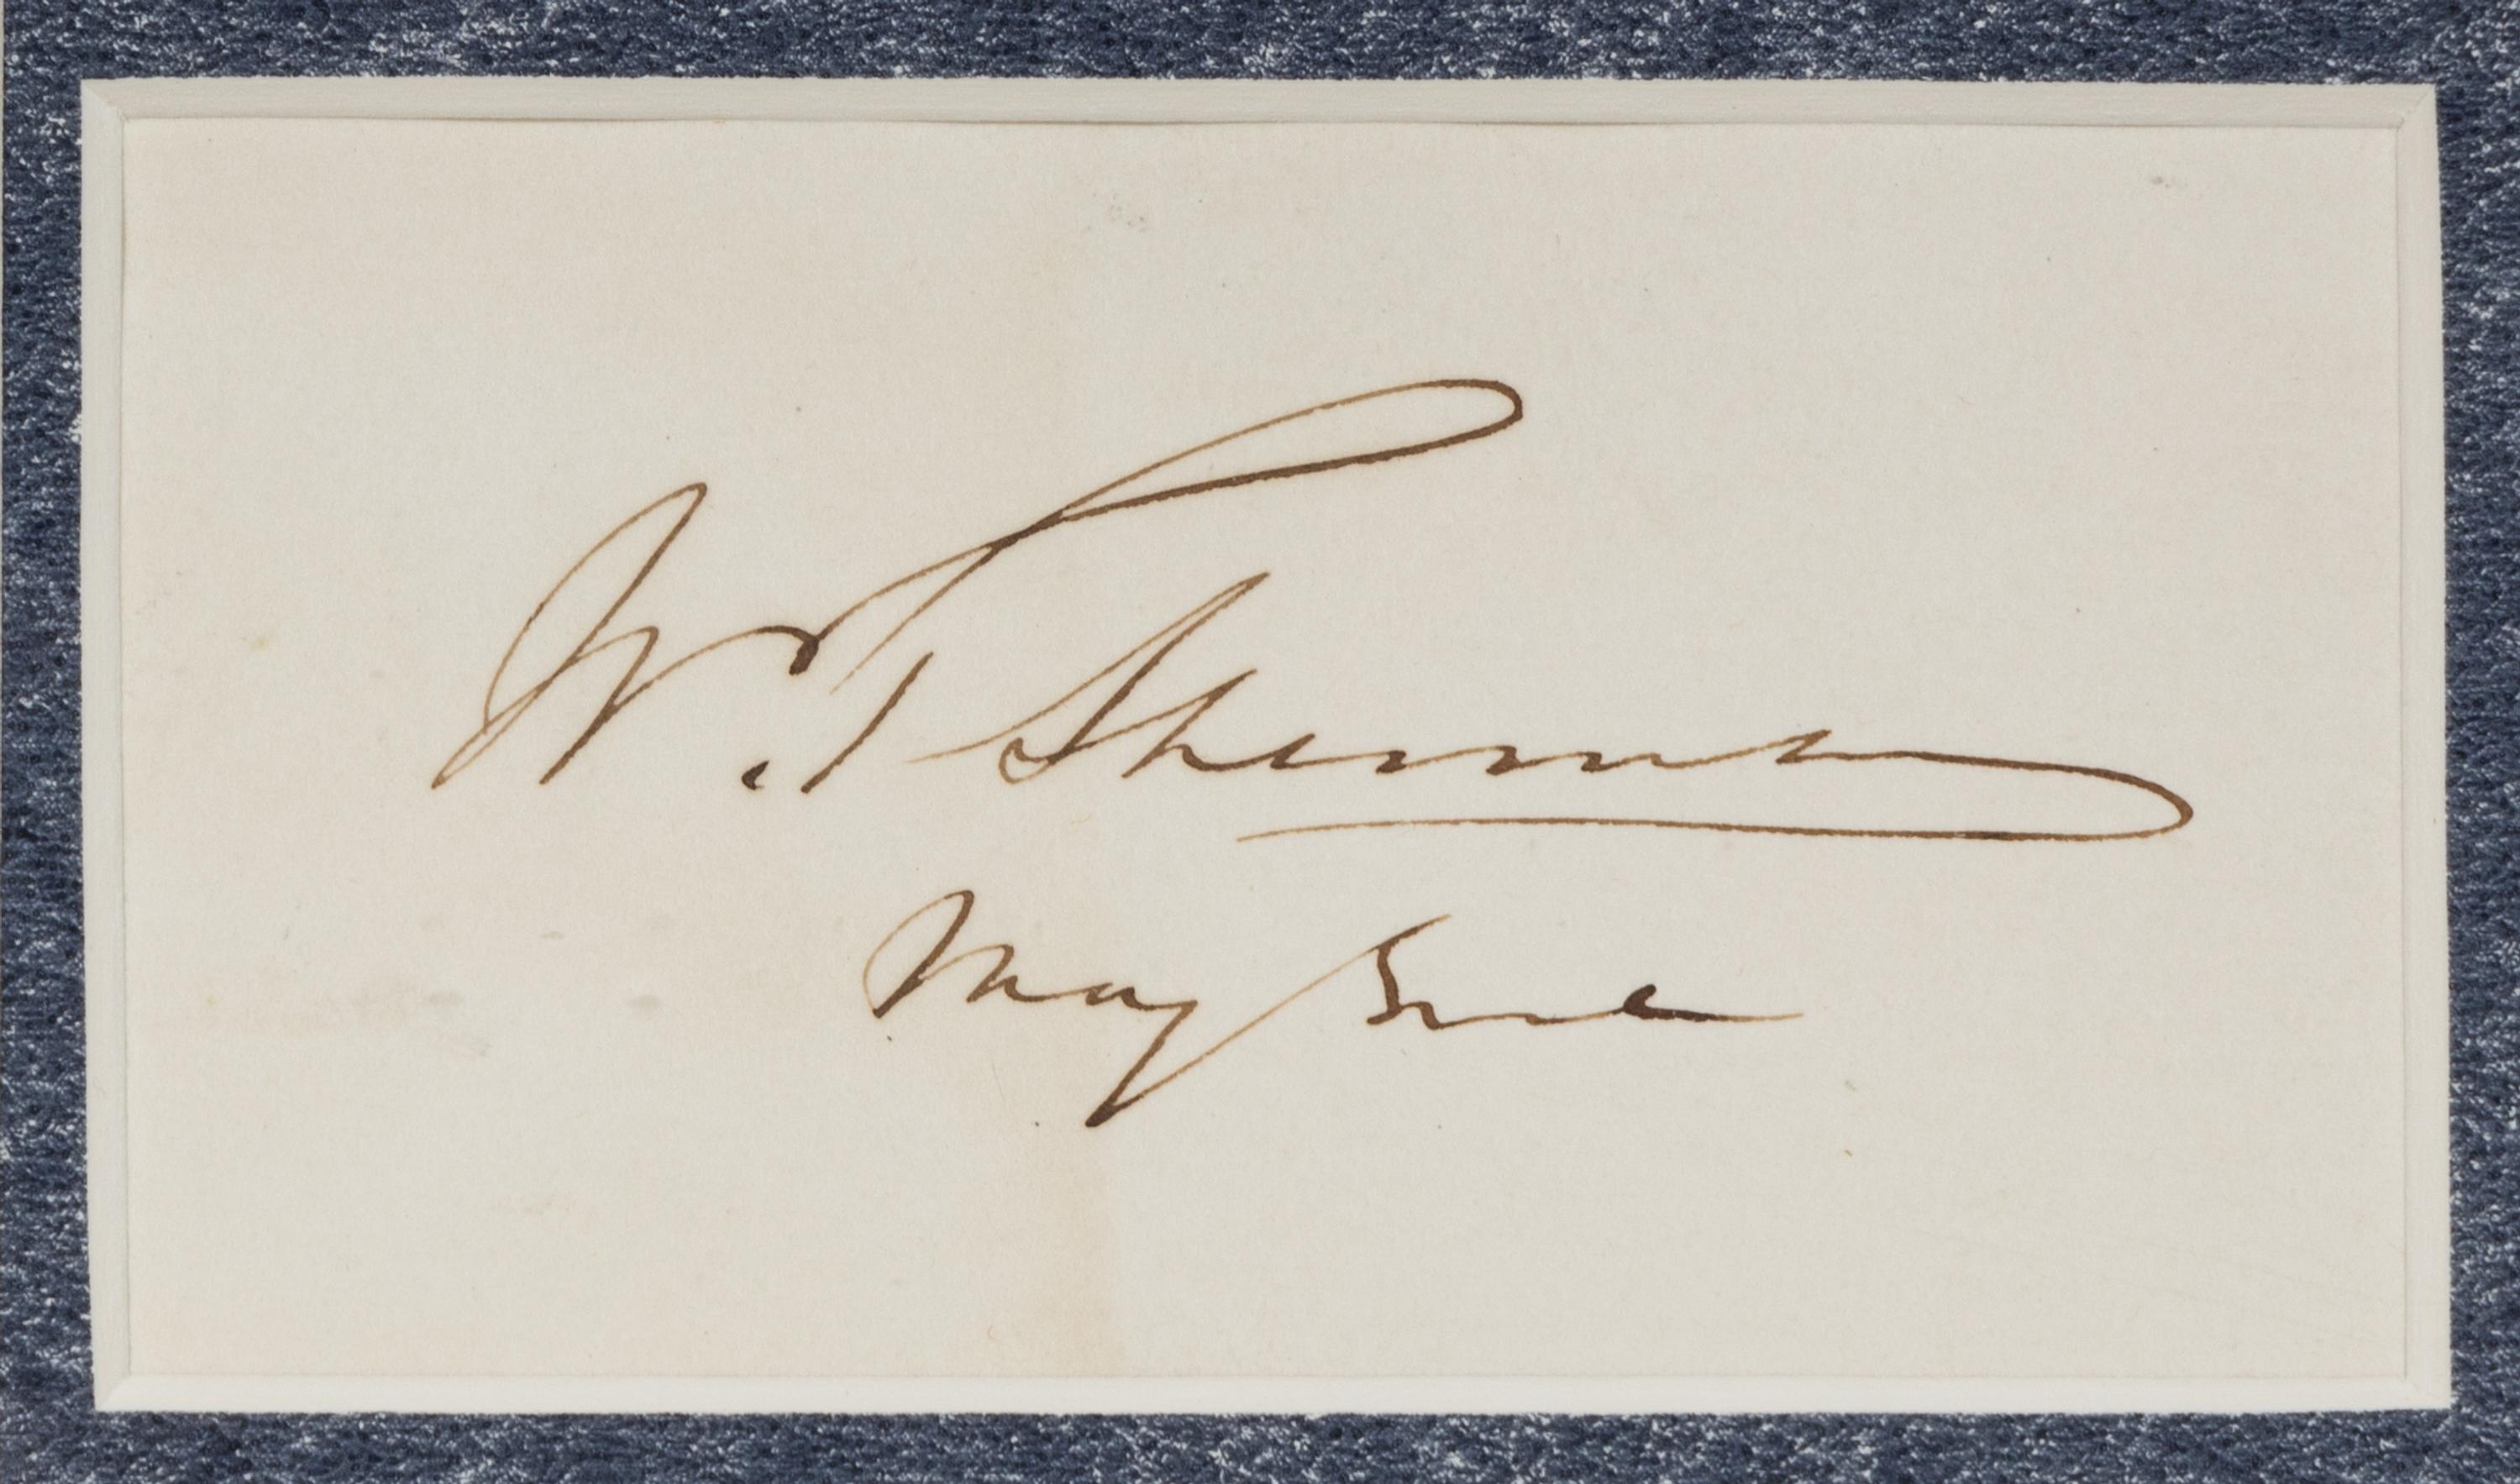 W. T. Sherman
Maj Genl